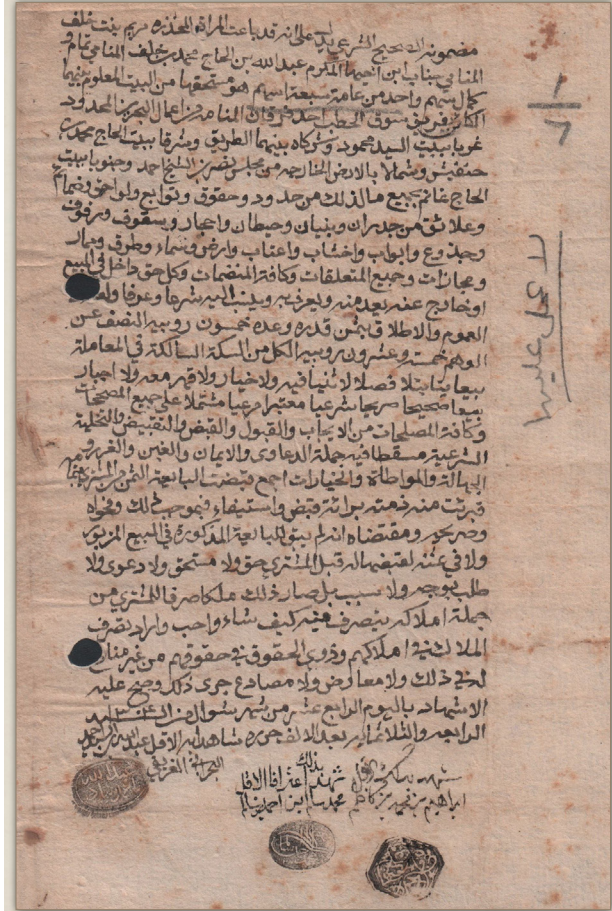 مضمونه الصحيح الشرعي على انه قد باعت المراة المخدره مريم بنت خلف
المنامي جناب ابن اخيها المكرم عبد الله بن الحاج محمد بن خلف المنامي تمام و
كمال سهم واحد من عامة سبعة اسهم هو مستحقها من البيت المعلوم بينهما
الكائن فريق سوق الحطب احد فرقان المنامة من اعمال البحرين المحدود
غربا ببيت السيد محمود وشركاه بينهما الطريق وشرقا ببيت الحاج محمد بن
حنفيش وشمالا بالارض الخارجه من مجلس نصر بن الشيخ احمد وجنوبا ببيت
الحاج غانم بجميع ما لذلك من حدود وحقوق وتوابع ولواحق وضمائم
وعلائق من جدران وبنيان وحيطان واحجار وسقوف ورفوف
وجذوع وابواب واخشاب واعتاب وارض وسماء وطرق وممار
ومجازات وجميع المتعلقات وكافة المنضمات وكل حق داخل في المبيع
او خارج عنه يعد منه ويعزى به وينسب اليه شرعا وعرفا
العموم والاطلاق بثمن قدره وعده خمسون روبيه النصف عن
الوهم خمسة وعشرون روبيه الكل من السكة السالكة في المعاملة
بيعا بتا بتلا فصلا لا ثنيا فيه ولا خيار ولا قهر معه ولا اجبار
بيعا صحيحا صريحا شرعيا معتبرا مرعيا مشتملا على جميع المصححات
وكافة المصلحات من الايجاب والقبول والقبض والتقبيض والتخلية
الشرعية مسقطا فيه جملة الدعاوى والايمان والغبن والغرر و
الجهالة والمواطاة والخيارات اجمع قبضت البايعة الثمن من المشتري
فبرئت منه ذمته برائة قبض واستيفاء فبموجب ذلك وفحواه
وصريحه ومقتضاه انه لم يبق للبايعة المذكورة في المبيع المزبور
ولا في ثمنه لقبضها له قبل المشتري حق ولا مستحق ولا دعوى ولا
طلب بوجه ولا سبب بل صار ذلك ملكا صرفا للمشتري من
جملة املاكه يتصرف فيه كيف شاء واحب واراد تصرف
الملاك في املاكهم وذوي الحقوق في حقوقهم من غير منازع
له في ذلك ولا معارض ولا مصادع جرى ذلك وصح عليه
الاشهاد باليوم الرابع عشر من شهر شوال
الرابعه والثلاثمائه بعد الالف حرره شاهدا به الاقل عبد الله بن احمد
البحراني الغريفي
شهد بذلك الاقل
ابراهيم بن محمد بن كاظم
بذلك
شهد اعترافا الاقل
محمد بن احمد